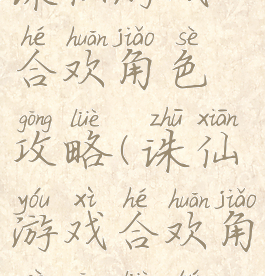 hé huān jiǎo sè
合欢角色
gōng lüè zhū xiān
攻略(诛仙
yóu xì hé huān jiǎo
游戏合欢角